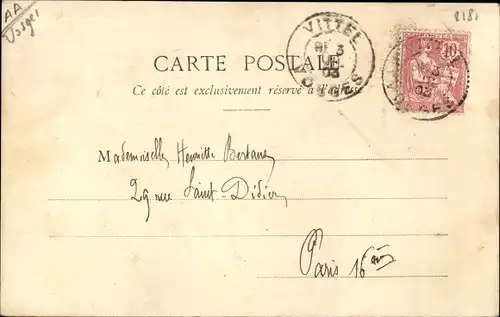 AA
Vosges
2181
VITTEL
3
03
VOSGES
10
CARTE POSTALE
Ce côté est exclusivement réservé à l'adresse
Mademoiselle Henriette
29 rue Saint-Didier
Paris 16